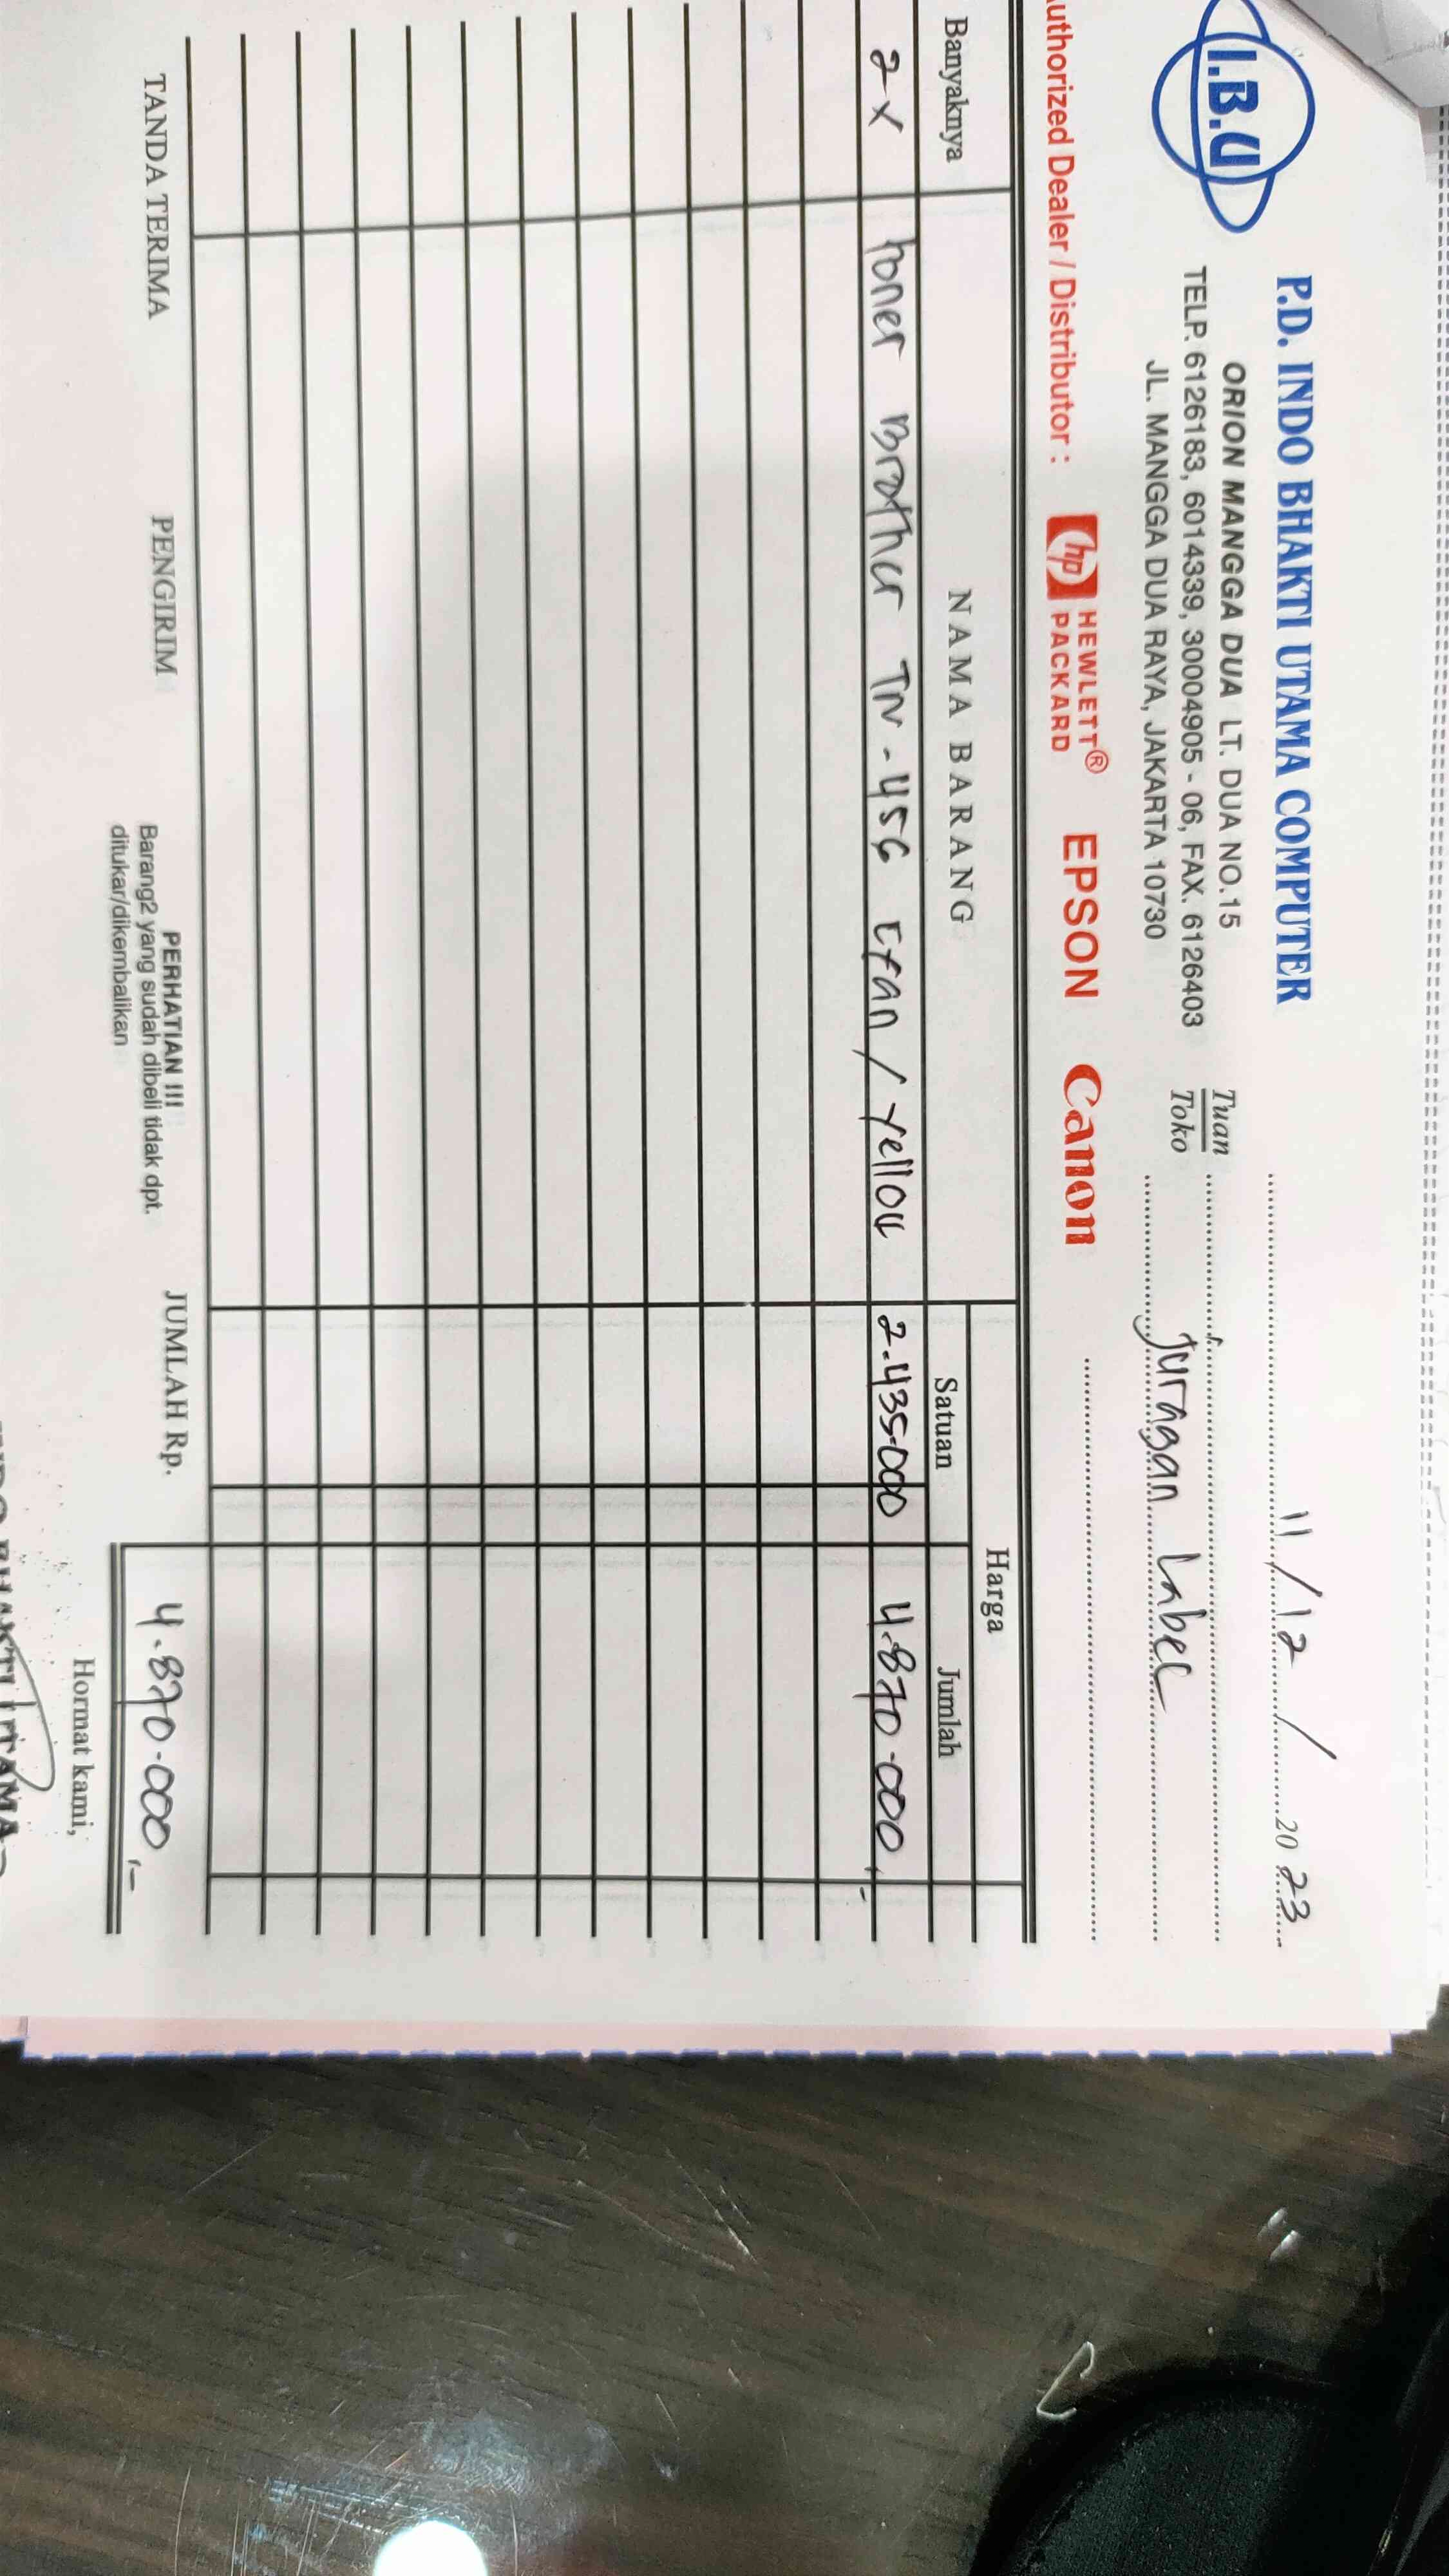 I.B.U
P.D. INDO BHAKTI UTAMA COMPUTER
ORION MANGGA DUA LT. DUA NO.15
TELP. 6126183, 6014339, 30004905 - 06, FAX. 6126403
JL. MANGGA DUA RAYA, JAKARTA 10730
11 / 12 / 20 23
Tuan
Toko
Juragan Label
uthorized Dealer / Distributor : hp HEWLETT® PACKARD EPSON Canon
Banyaknya NAMA BARANG Harga
Satuan Jumlah
2 x Toner Brother TN - 456 Cyan / Yellow 2.435.000 4.870.000,-
TANDA TERIMA PENGIRIM JUMLAH Rp. 4.870.000,-
PERHATIAN !!!
Barang2 yang sudah dibeli tidak dpt.
ditukar/dikembalikan
Hormat kami,